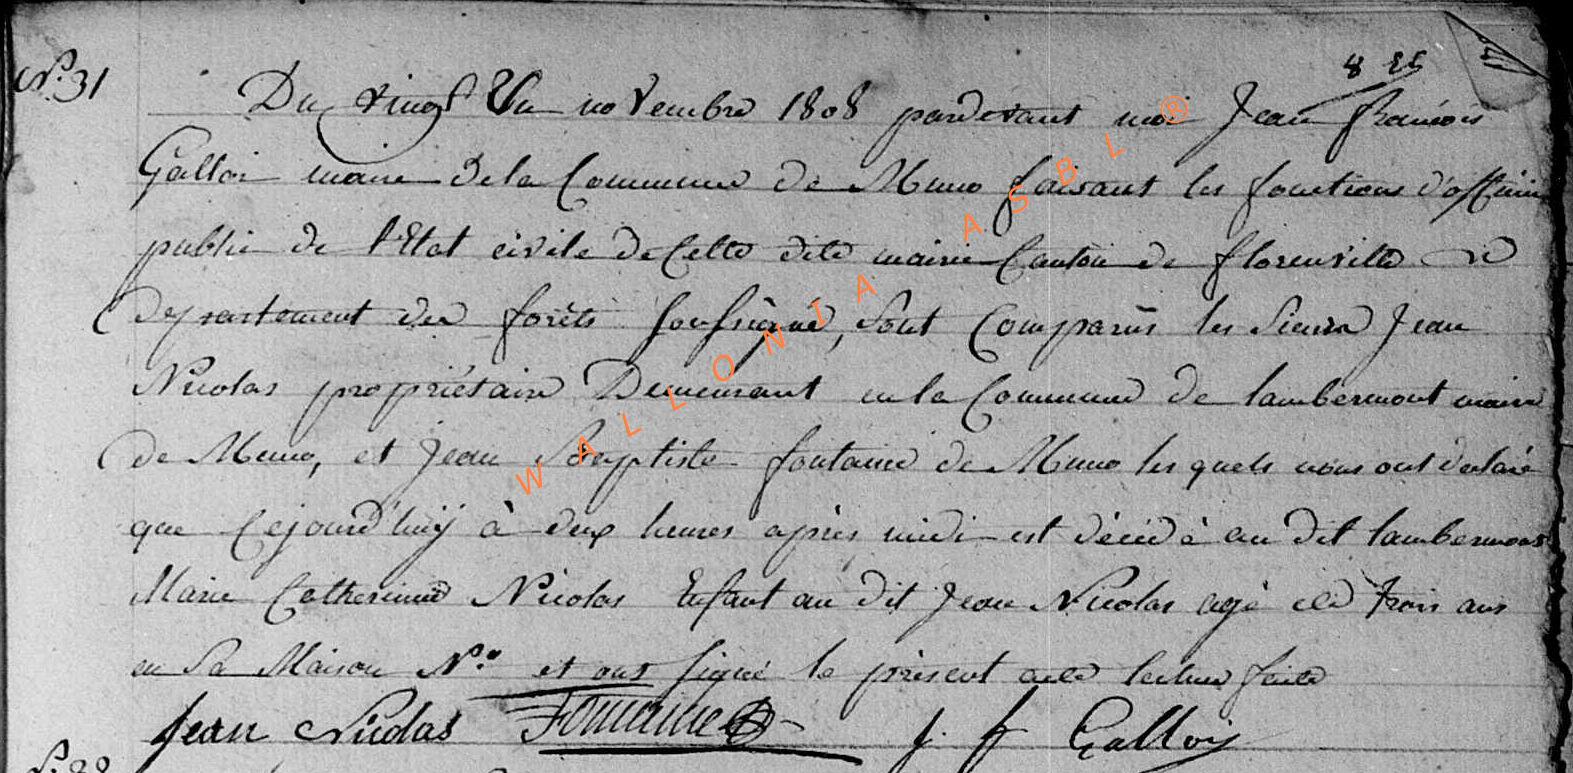 N.º 31
Du vingt Un novembre 1808 pardevant moi Jean françois
Galloi maire de la Commune de Muno faisant les fonctions d'officier
public de l'Etat civile de Cette dite mairie Canton de florenville
departement des forêts soussigné, sont Comparûs les Sieurs Jean
Nicolas propriétaire Demeurant en la Commune de lambermont mairie
de Muno, et Jean Baptiste fontaine de Muno lesquels nous ont déclaré
que Cejourd'huÿ à deux heures après midi est décédé au dit lambermont
Marie Catherinne Nicolas Enfant au dit Jean Nicolas agé de trois ans
en Sa Maison N.º et ont signé le présent acte lecture faite
Jean Nicolas Fontaine J. f Gallois
WALLONIA ASBL ®